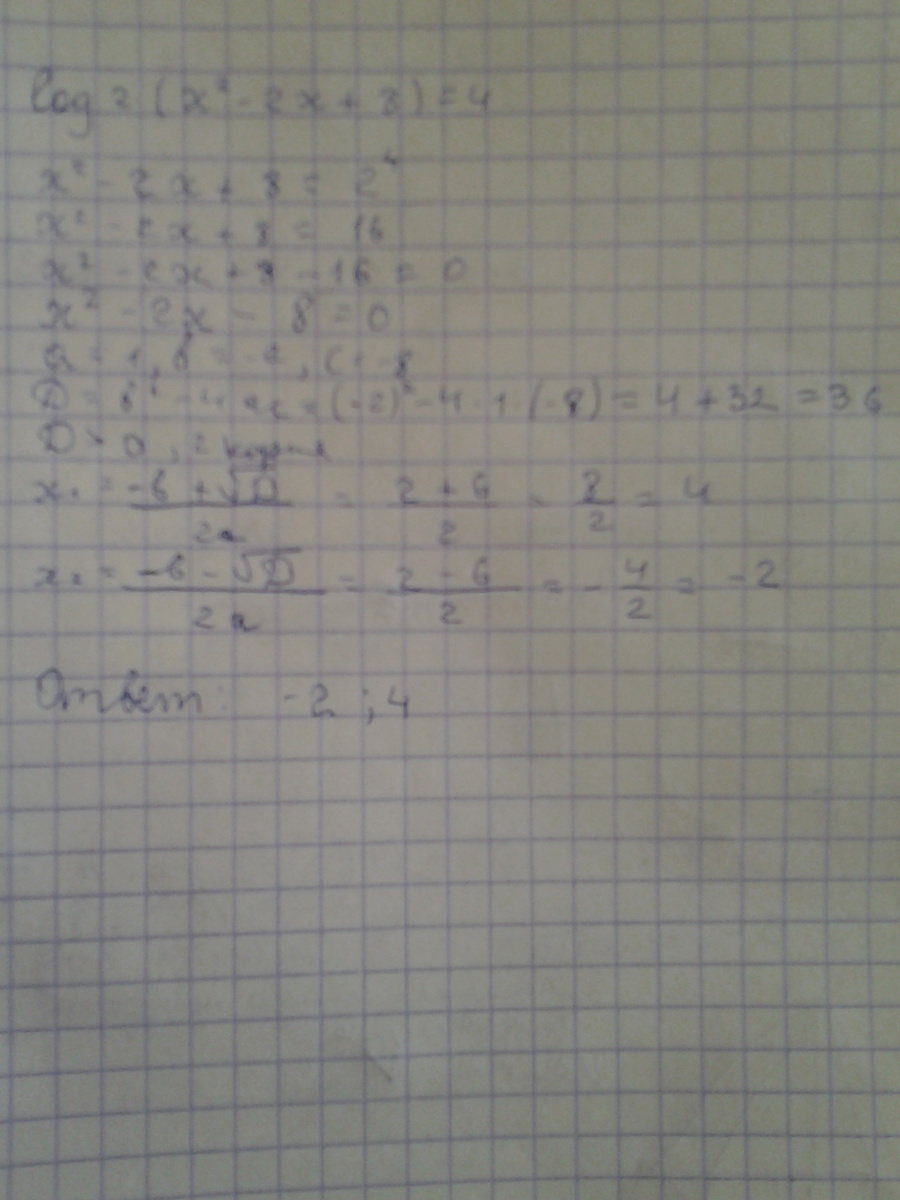 log 2 (x² - 2x + 8) = 4
x² - 2x + 8 = 2⁴
x² - 2x + 8 = 16
x² - 2x + 8 - 16 = 0
x² - 2x - 8 = 0
a = 1, b = -2, c = -8
D = b² - 4ac = (-2)² - 4·1·(-8) = 4 + 32 = 36
D > 0, 2 корня
x₁ = (-b + √D)/2a = (2 + 6)/2 = 8/2 = 4
x₂ = (-b - √D)/2a = (2 - 6)/2 = -4/2 = -2
Ответ: -2; 4